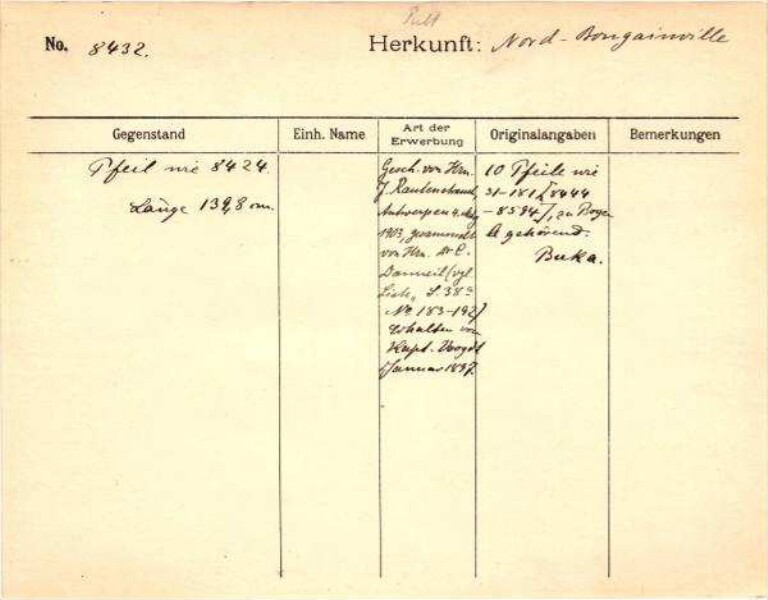 No. 8432.
Herkunft: Nord-Bougainville
Gegenstand
Einh. Name
Art der Erwerbung
Originalangaben
Bemerkungen
Pfeil wie 8424.
Länge 139,8 cm.
Gesch. von Hrn.
J. Rautenstrauch,
Antwerpen 4. Aug
1903, gesammelt
von Hrn. Dr C.
Danneil (vgl.
Liste S. 38a
No 183-192)
erhalten von
Kapt. Voogdt
Januar 1897.
10 Pfeile wie
31-181 [8444
-8594], zu Bogen
A gehörend.
Buka.